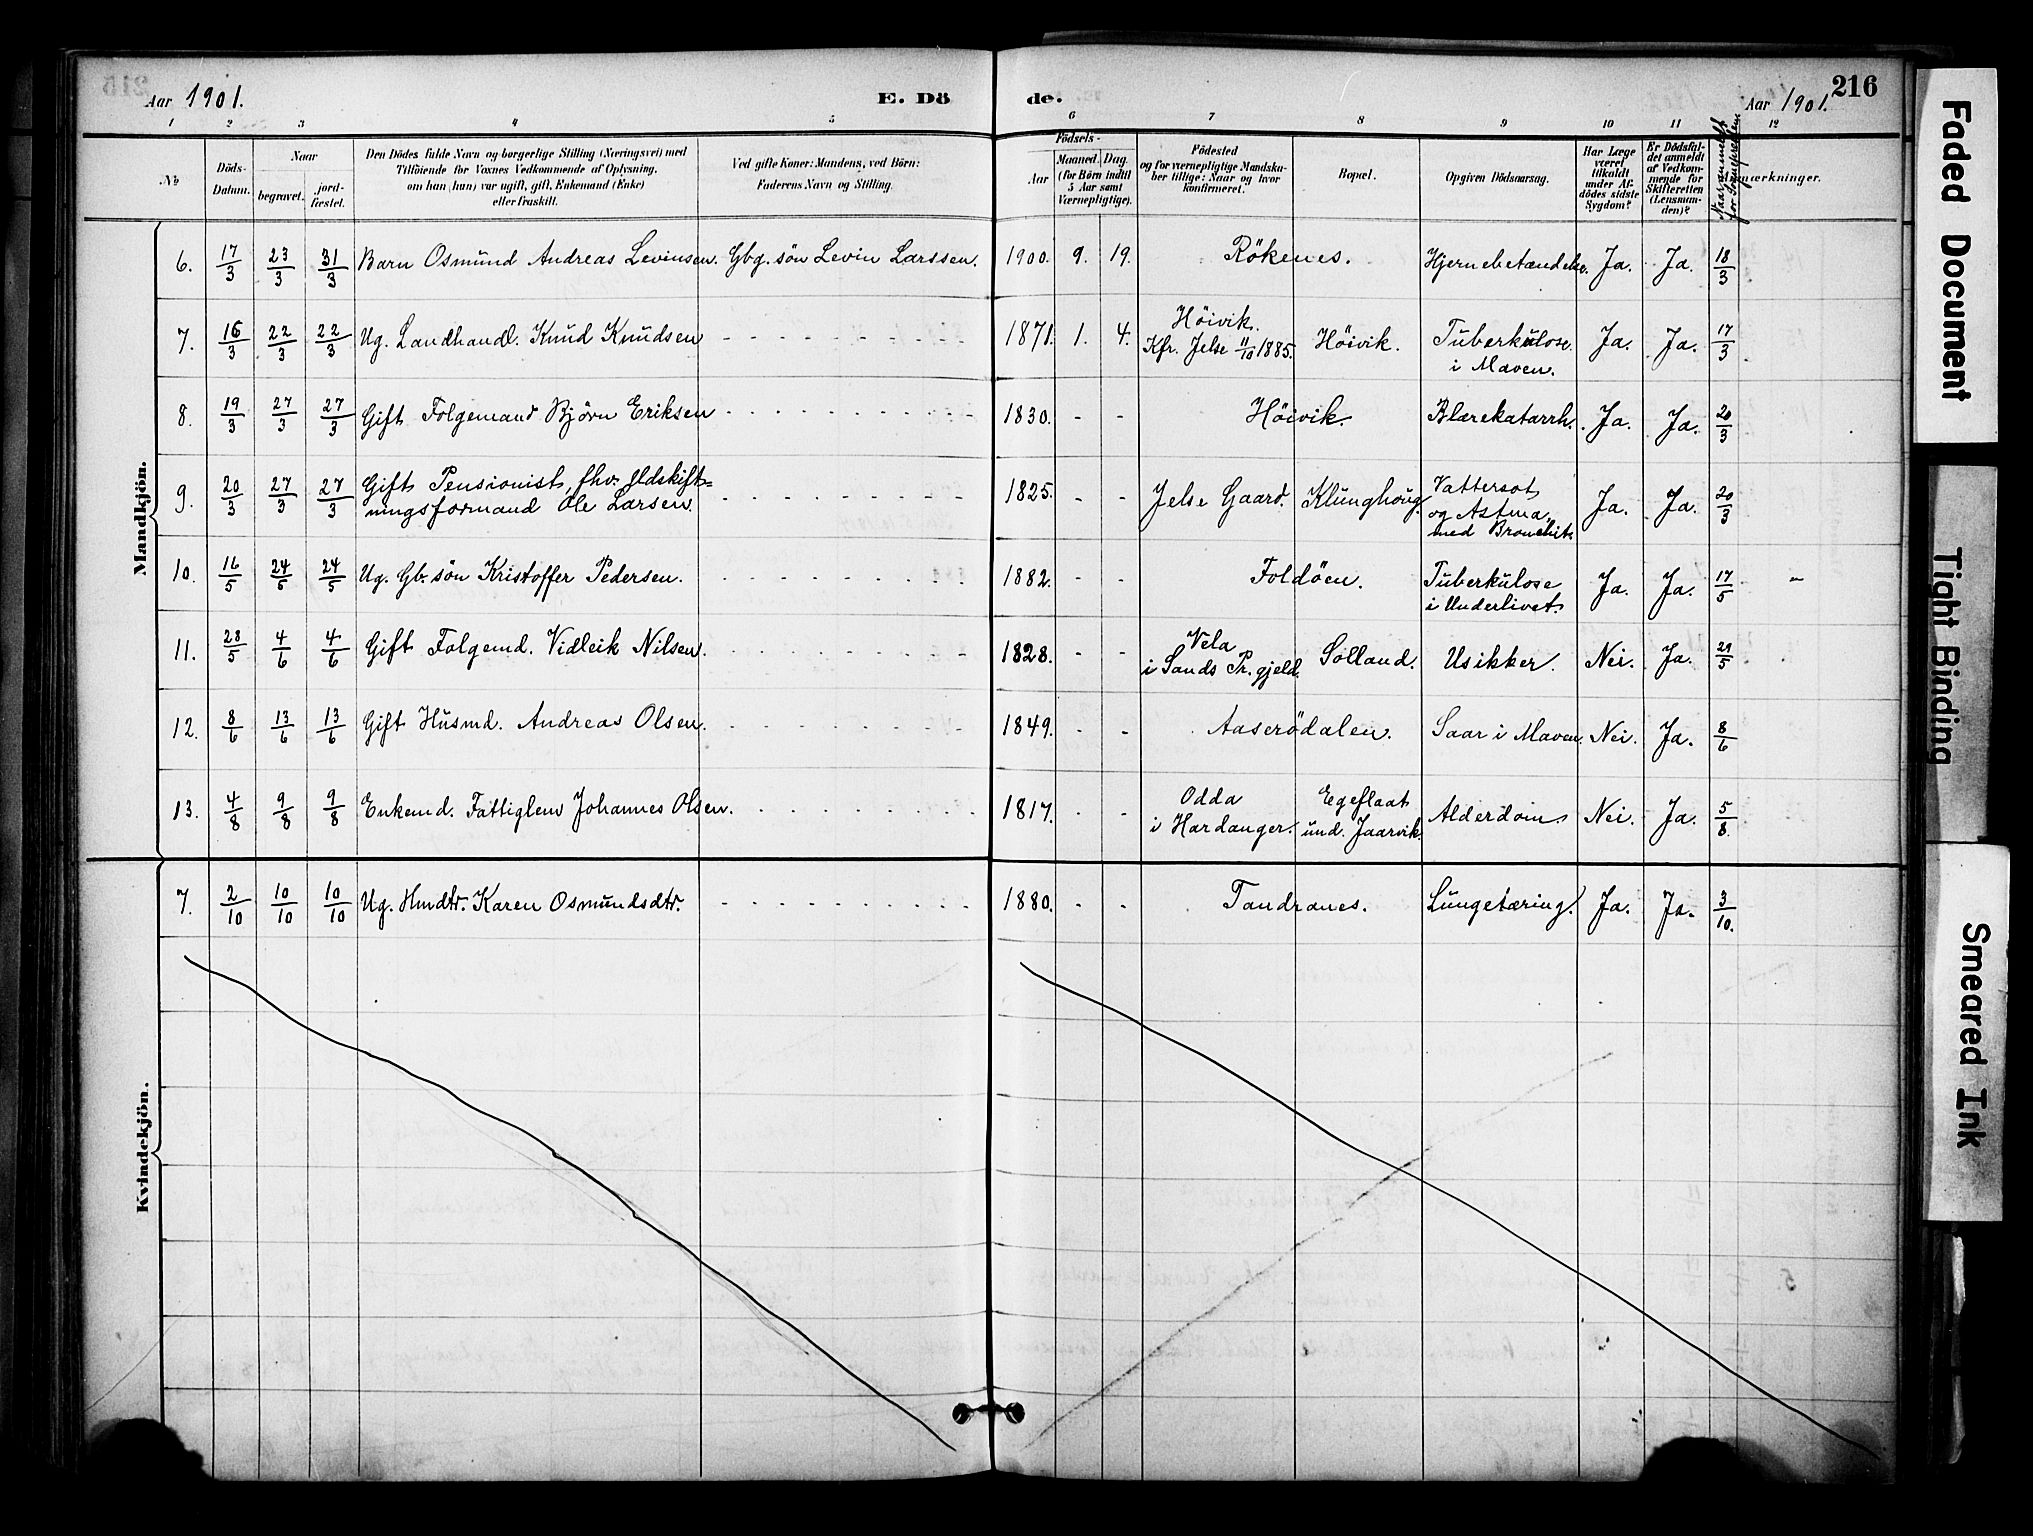 Aar 1901. E. Döde. Aar 1901. 216
1 2 3 4 5 6 7 8 9 10 11 12
№ Döds-Datum. Naar begravet. jordfæstet. Den Dödes fulde Navn og borgerlige Stilling (Næringsvei) med Tilföiende for Voxnes Vedkommende af Oplysning, om han (hun) var ugift, gift, Enkemand (Enke) eller fraskilt. Ved gifte Koner: Mandens, ved Börn: Faderens Navn og Stilling. Födsels- Aar Maaned. Dag. (for Börn indtil 5 Aar samt Værnepligtige). Födested og for værnepligtige Mandskaber tillige: Naar og hvor konfirmeret. Bopæl. Opgiven Dödsaarsag. Har Læge været tilkaldt under Afdödes sidste Sygdom? Er Dödsfaldet anmeldt af Vedkommende for Skifteretten (Lensmanden)? Naar anmeldt for Sognepresten Anmærkninger.
Mandkjön.
6. 17/3 23/3 31/3 Barn Osmund Andreas Levinsen. Gbg. søn Levin Larssen. 1900. 9. 19. Rökenes. Hjernebetændelse. Ja. Ja. 18/3
7. 16/3 22/3 22/3 Ug. Landhandl. Knud Knudsen - - - - - - - - - - 1871. 1. 4. Höivik. Kfr. Jelse 11/10 1885. Höivik. Tuberkulose i Maven. Ja. Ja. 17/3
8. 19/3 27/3 27/3 Gift Folgemand Björn Eriksen - - - - - - - - - - 1830. - - Höivik. Blærekatarrh. Ja. Ja. 20/3
9. 20/3 27/3 27/3 Gift Pensionist, fhv. Udskift=
ningsformand Ole Larsen. - - - - - - - - - - 1825. - - Jelse Gaard. Klunghoug. Vattersot og Astma, med Bronchit. Ja. Ja. 20/3
10. 16/5 24/5 24/5 Ug. Gb. søn Kristoffer Pedersen. - - - - - - - - - - 1882. - - Foldöen. Tuberkulose i Underlivet. Ja. Ja. 17/5 "
11. 28/5 4/6 4/6 Gift Folgemd. Vidleik Nilsen. - - - - - - - - - - 1828. - - Vela i Sands Pr.gjeld. Solland. Usikker. Nei. Ja. 29/5
12. 8/6 13/6 13/6 Gift Husmd. Andreas Olsen. - - - - - - - - - - 1849. - - Aaserödalen. Saar i Maven. Nei. Ja. 8/6
13. 4/8 9/8 9/8 Enkemd. Fattiglem Johannes Olsen. - - - - - - - - - 1817. - - Odda i Hardanger. Egeflaat und. Jaarvik. Alderdom. Nei. Ja. 5/8.
Kvindekjön.
7. 2/10 10/10 10/10 Ug. Hmdtr. Karen Osmundsdtr. - - - - - - - - - - 1880. - - Tandranes. Lungetæring. Ja. Ja. 3/10.
Faded Document
Tight Binding
Smeared Ink